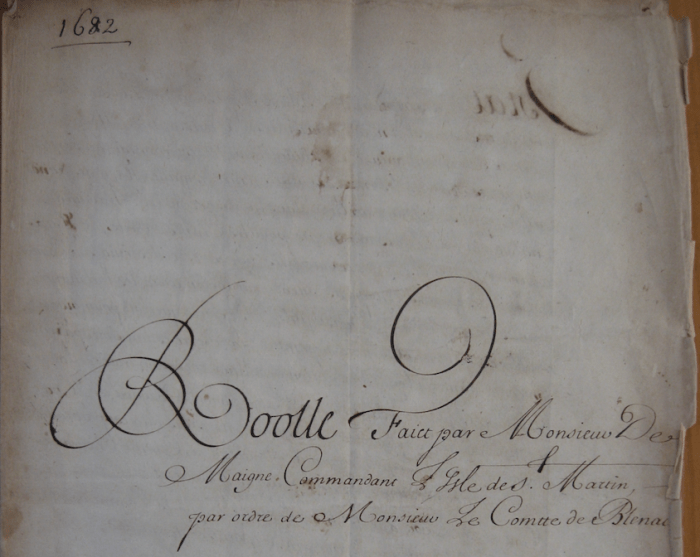 1682
Roolle Faict par Monsieur De
Maigne Commandant L'Isle de S.t Martin,
par ordre de Monsieur Le Comte de Blenac